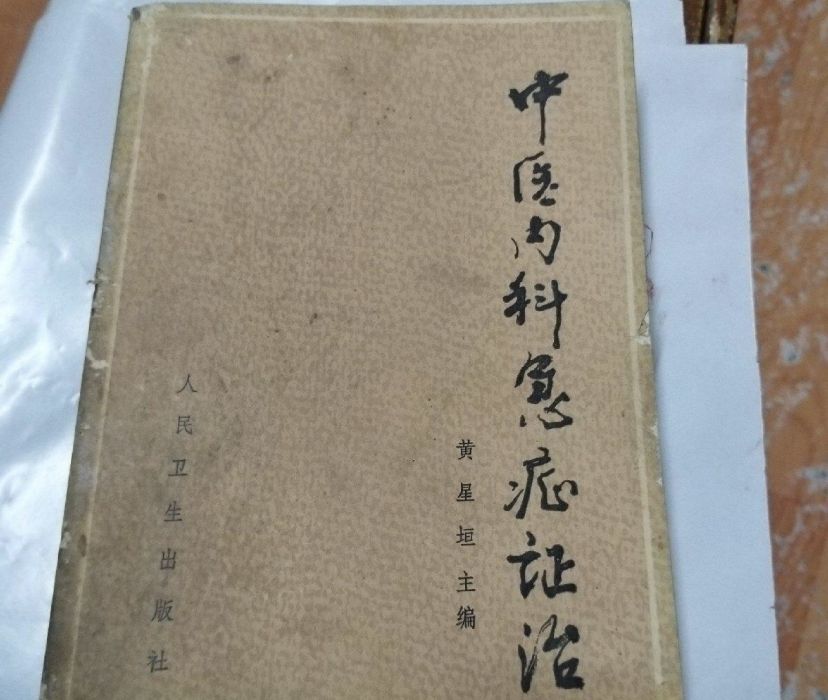 中医内科急症证治
黄星垣主编
人民卫生出版社